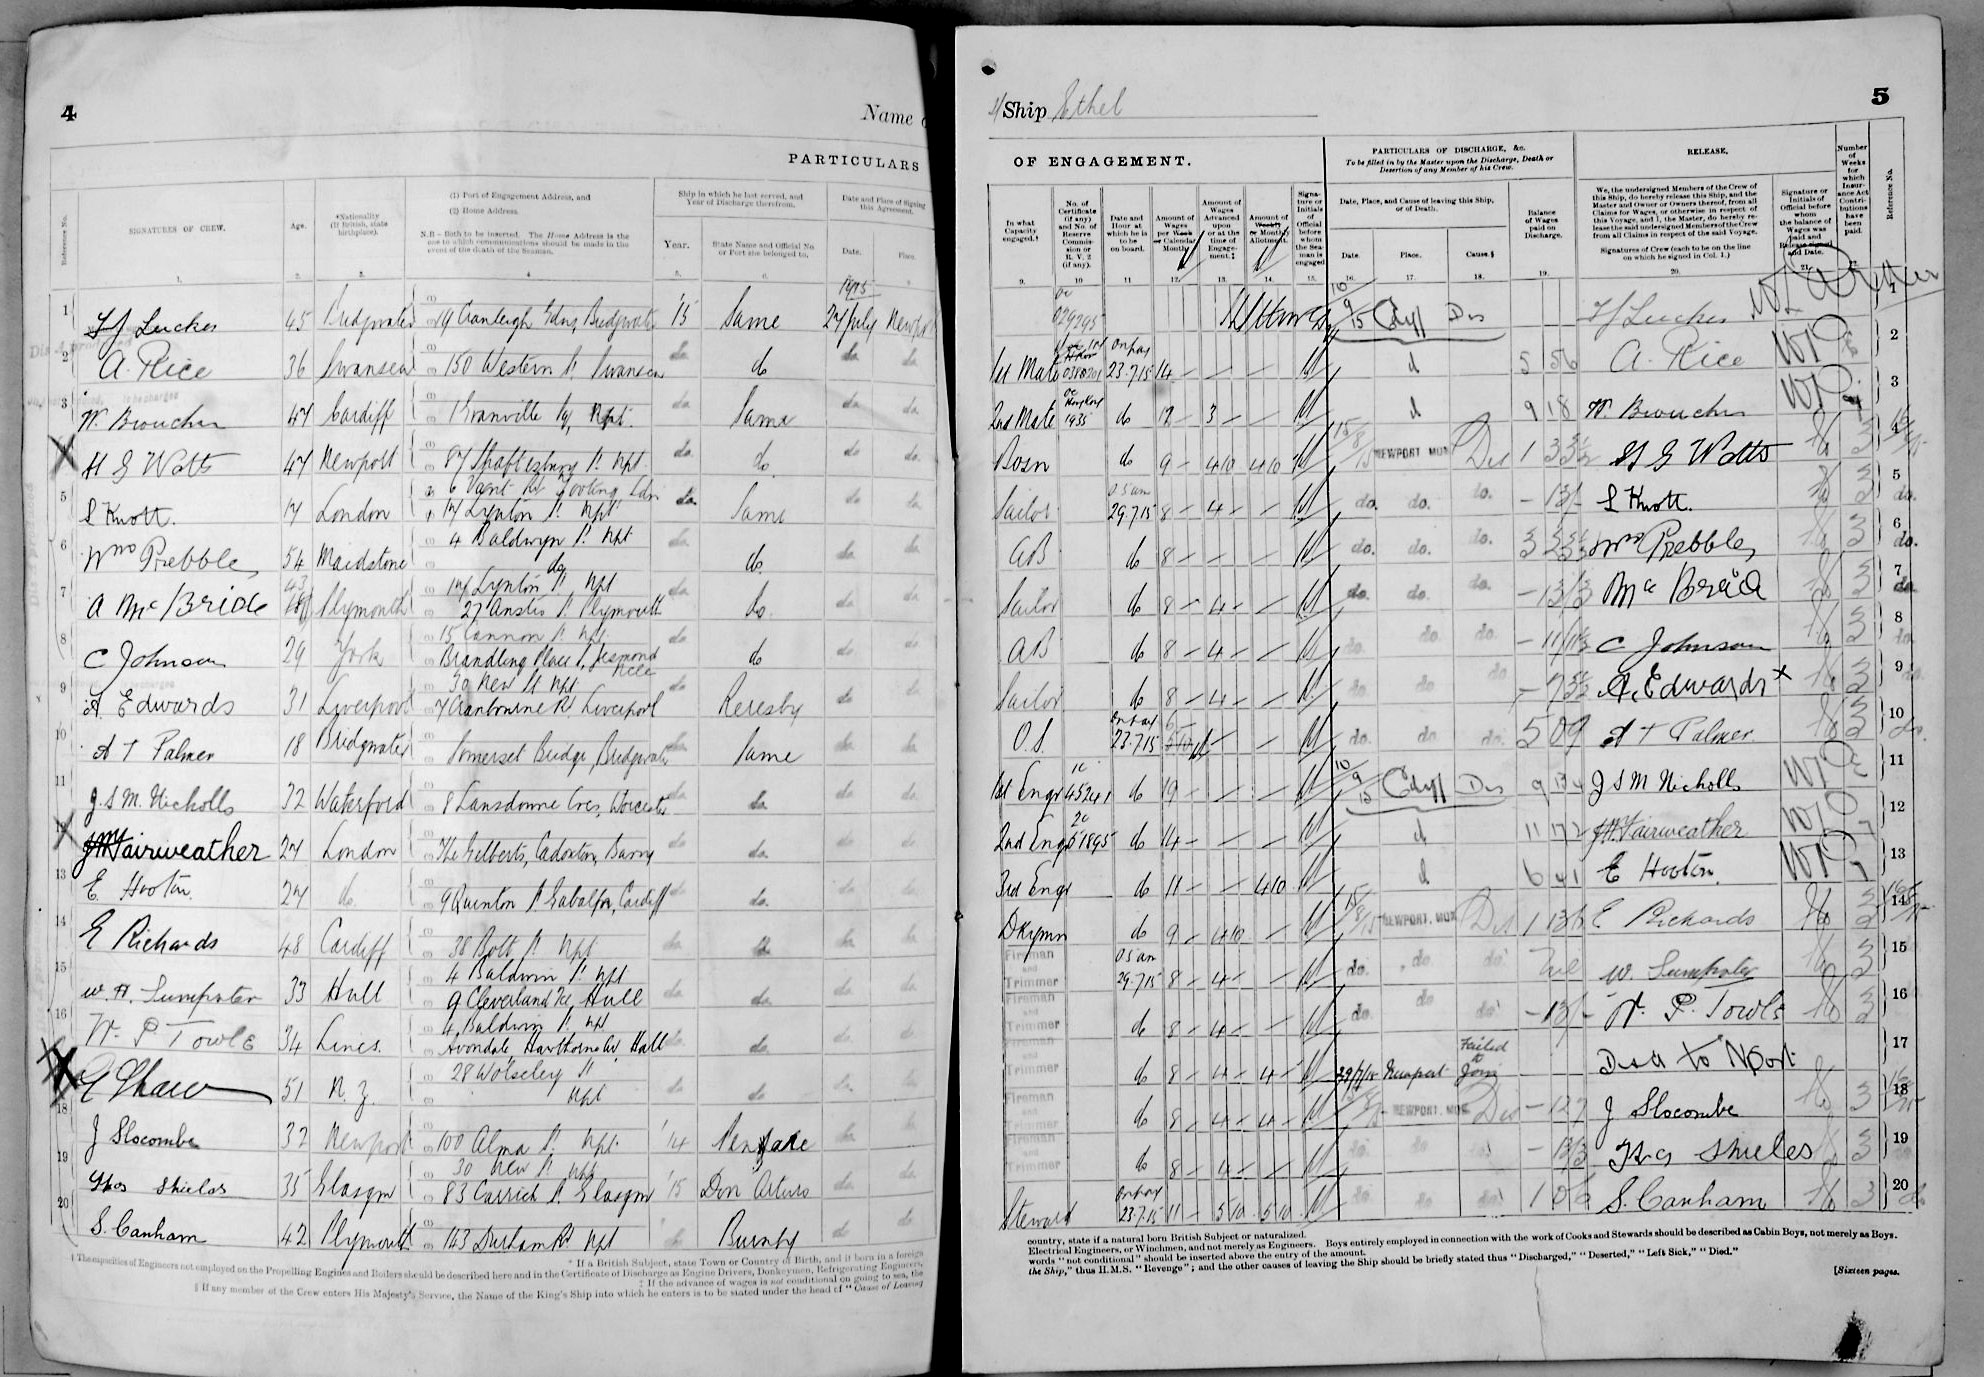 4
Name
PARTICULARS
Reference No.
SIGNATURES OF CREW.
Age.
*Nationality (If British, state birthplace).
(1) Port of Engagement Address, and
(2) Home Address
N.B.—Both to be inserted. The Home Address is the one to which communications should be made in the event of the death of the Seaman.
Ship in which he last served, and Year of Discharge therefrom.
Year.
State Name and Official No or Port she belonged to,
Date and Place of Signing this Agreement.
Date.
Place.
1. 2. 3. 4 5. 6.
1915
1 45 Bridgwater 19 Cranleigh Gdns, Bridgwater '15 Same 27 July Newport
2 A. Rice 36 Swansea 150 Western St Swansea do do do do
3 W. Broucher 47 Cardiff 1 Granville Sq, Npt. do Same do do
X H G Watts 47 Newport 87 Shaftesbury St. Npt. do. do. do do
5 S Knott. 17 London Tooting, Ldn
14 Lynton St. Npt do. Same do do
6 Wm Prebble 54 Maidstone 4 Baldwyn St. Npt.
do do do do do
7 A McBride 43 Plymouth 14 Lynton St Npt
27 Anstis St Plymouth do do. do do
8 C Johnson 29 York 15 Cannon St. Npt.
Brandling Place, Jesmond do do do do
9 A Edwards 31 Liverpool 30 New St Npt.
7 Cranbourne Rd Liverpool do Reresby do do
10 A T Palmer 18 Bridgwater Somerset Bridge, Bridgwater do Same do do
11 J. S M. Nicholls 32 Waterford 8 Lansdowne Cres, Worcester do do do
12 Fairweather 27 London The Gilberts, Cadoxton, Barry do do. do do
13 E Hooton. 27 do. 9 Quinton St. Gabalfa, Cardiff do do. do do
14 E Richards 48 Cardiff 38 Bolt St Npt do do do do
15 W. H. Sumpster 33 Hull 4 Baldwin St. Npt
9 Cleverland Tce, Hull do do. do do
16 W. P. Towle 34 Lincs. 4, Baldwin St. Npt
Avondale, Hawthorne Av, Hull do do. do do
X E Shaw 51 N. Z. 28 Wolseley St
Npt do do do do
18 J Slocombe 32 Newport 100 Alma St. Npt. '14 do do
19 Thos Shields 35 Glasgow 30 New St Npt
83 Carrick St Glasgow '15 Don Arturo do do
20 S. Canham 42 Plymouth 143 Durham Rd Npt do Burnby do do
* If a British Subject, state Town or Country of Birth, and if born in a foreign
† The capacities of Engineers not employed on the Propelling Engines and Boilers should be described here and in the Certificate of Discharge as Engine Drivers, Donkeymen, Refrigerating Engineers,
‡ If the advance of wages is not conditional on going to sea, the
§ If any member of the Crew enters His Majesty's Service, the Name of the King's Ship into which he enters is to be stated under the head of "Cause of Leaving
Ship Ethel
5
OF ENGAGEMENT.
PARTICULARS OF DISCHARGE, &c.
To be filled in by the Master upon the Discharge, Death or Desertion of any Member of his Crew.
RELEASE,
Number of Weeks for which Insurance Act Contributions have been paid.
Reference No.
In what Capacity engaged.†
No. of Certificate (if any) and No. of Reserve Commission or R. V. 2 (if any).
Date and Hour at which he is to be on board.
Amount of Wages per Week or Calendar Month.
Amount of Wages Advanced upon or at the time of Engagement.‡
Amount of Weekly or Monthly Allotment.
Signature or Initials of Official before whom the Seaman is engaged
Date, Place, and Cause of leaving this Ship, or of Death.
Date.
Place.
Cause.§
Balance of Wages paid on Discharge.
We, the undersigned Members of the Crew of this Ship, do hereby release this Ship, and the Master and Owner or Owners thereof, from all Claims for Wages, or otherwise in respect of this Voyage, and I, the Master, do hereby release the said undersigned Members of the Crew from all Claims in respect of the said Voyage.
Signatures of Crew (each to be on the line on which he signed in Col. 1.)
Signature or Initials of Official before whom the balance of Wages was paid and Release signed and Date.
9. 10 11 12. 13. 14. 15. 16. 17. 18. 19. 20. 21.
029295 10/9/15 Cdff Dis
1st Mate On pay 23.7.15 14 — — — 5 5 6 A. Rice 2
2nd Mate Hong Kong 1935 do 12 — 3 — — 9 18 W. Broucher 3
Bosn do 9 — 4 10 4 10 15/8/15 NEWPORT, MON Dis 1 3 H G Watts 3 4
Sailor 5 am 29.7.15 8 — 4 — — do. do. do. — 13/- S Knott. 3 5 do.
AB do 8 — — — do. do. do. 3 Wm Prebble 3 6 do.
Sailor do 8 — 4 — — do. do. do. — 13/3 Mc Bride 3 7 do
AB do 8 — 4 — — do. do. do. C Johnson 3 8 do
Sailor do 8 — 4 — — do. do do A. Edwards x 3 9 do
O.S. On pay 23.7.15 — — do. do. do. 5 0 9 A T Palmer. 3 10 do.
1st Engr 1c 45241 do 19 — — — 10/9/15 Cdff Dis 9 J S M Nicholls 11
2nd Engr 2c 51895 do 14 — — — 11 17 2 Fairweather 12
3rd Engr do 11 — — 4 10 6 4 1 E Hooton. 13
Dkymn do 9 — 4 10 — 15/8/15 NEWPORT, MON Dis 1 13/6 E Richards 14
Fireman and Trimmer 5 am 29.7.15 8 — 4 — — do. do do Nil W. Sumpster 3 15
Fireman and Trimmer do 8 — 4 — — do. do do — 13/- W. P. Towle 3 16
Fireman and Trimmer do 8 — 4 — 4 — 29/7/15 Newport Failed to Join 17
Fireman and Trimmer do 8 — 4 — 4 — NEWPORT, MON Dis — 12 7 J Slocombe 3 18
Fireman and Trimmer do 8 — 4 — — do do do — 13/3 Thos Shieles 3 19
Steward On pay 23.7.15 11 — 5 10 5 10 do do do 1 0 6 S. Canham 3 20 do
country, state if a natural born British Subject or naturalized.
Electrical Engineers, or Winchmen, and not merely as Engineers. Boys entirely employed in connection with the work of Cooks and Stewards should be described as Cabin Boys, not merely as Boys.
words "not conditional" should be inserted above the entry of the amount.
the Ship," thus H.M.S. "Revenge"; and the other causes of leaving the Ship should be briefly stated thus "Discharged," "Deserted," "Left Sick," "Died."
[Sixteen pages.